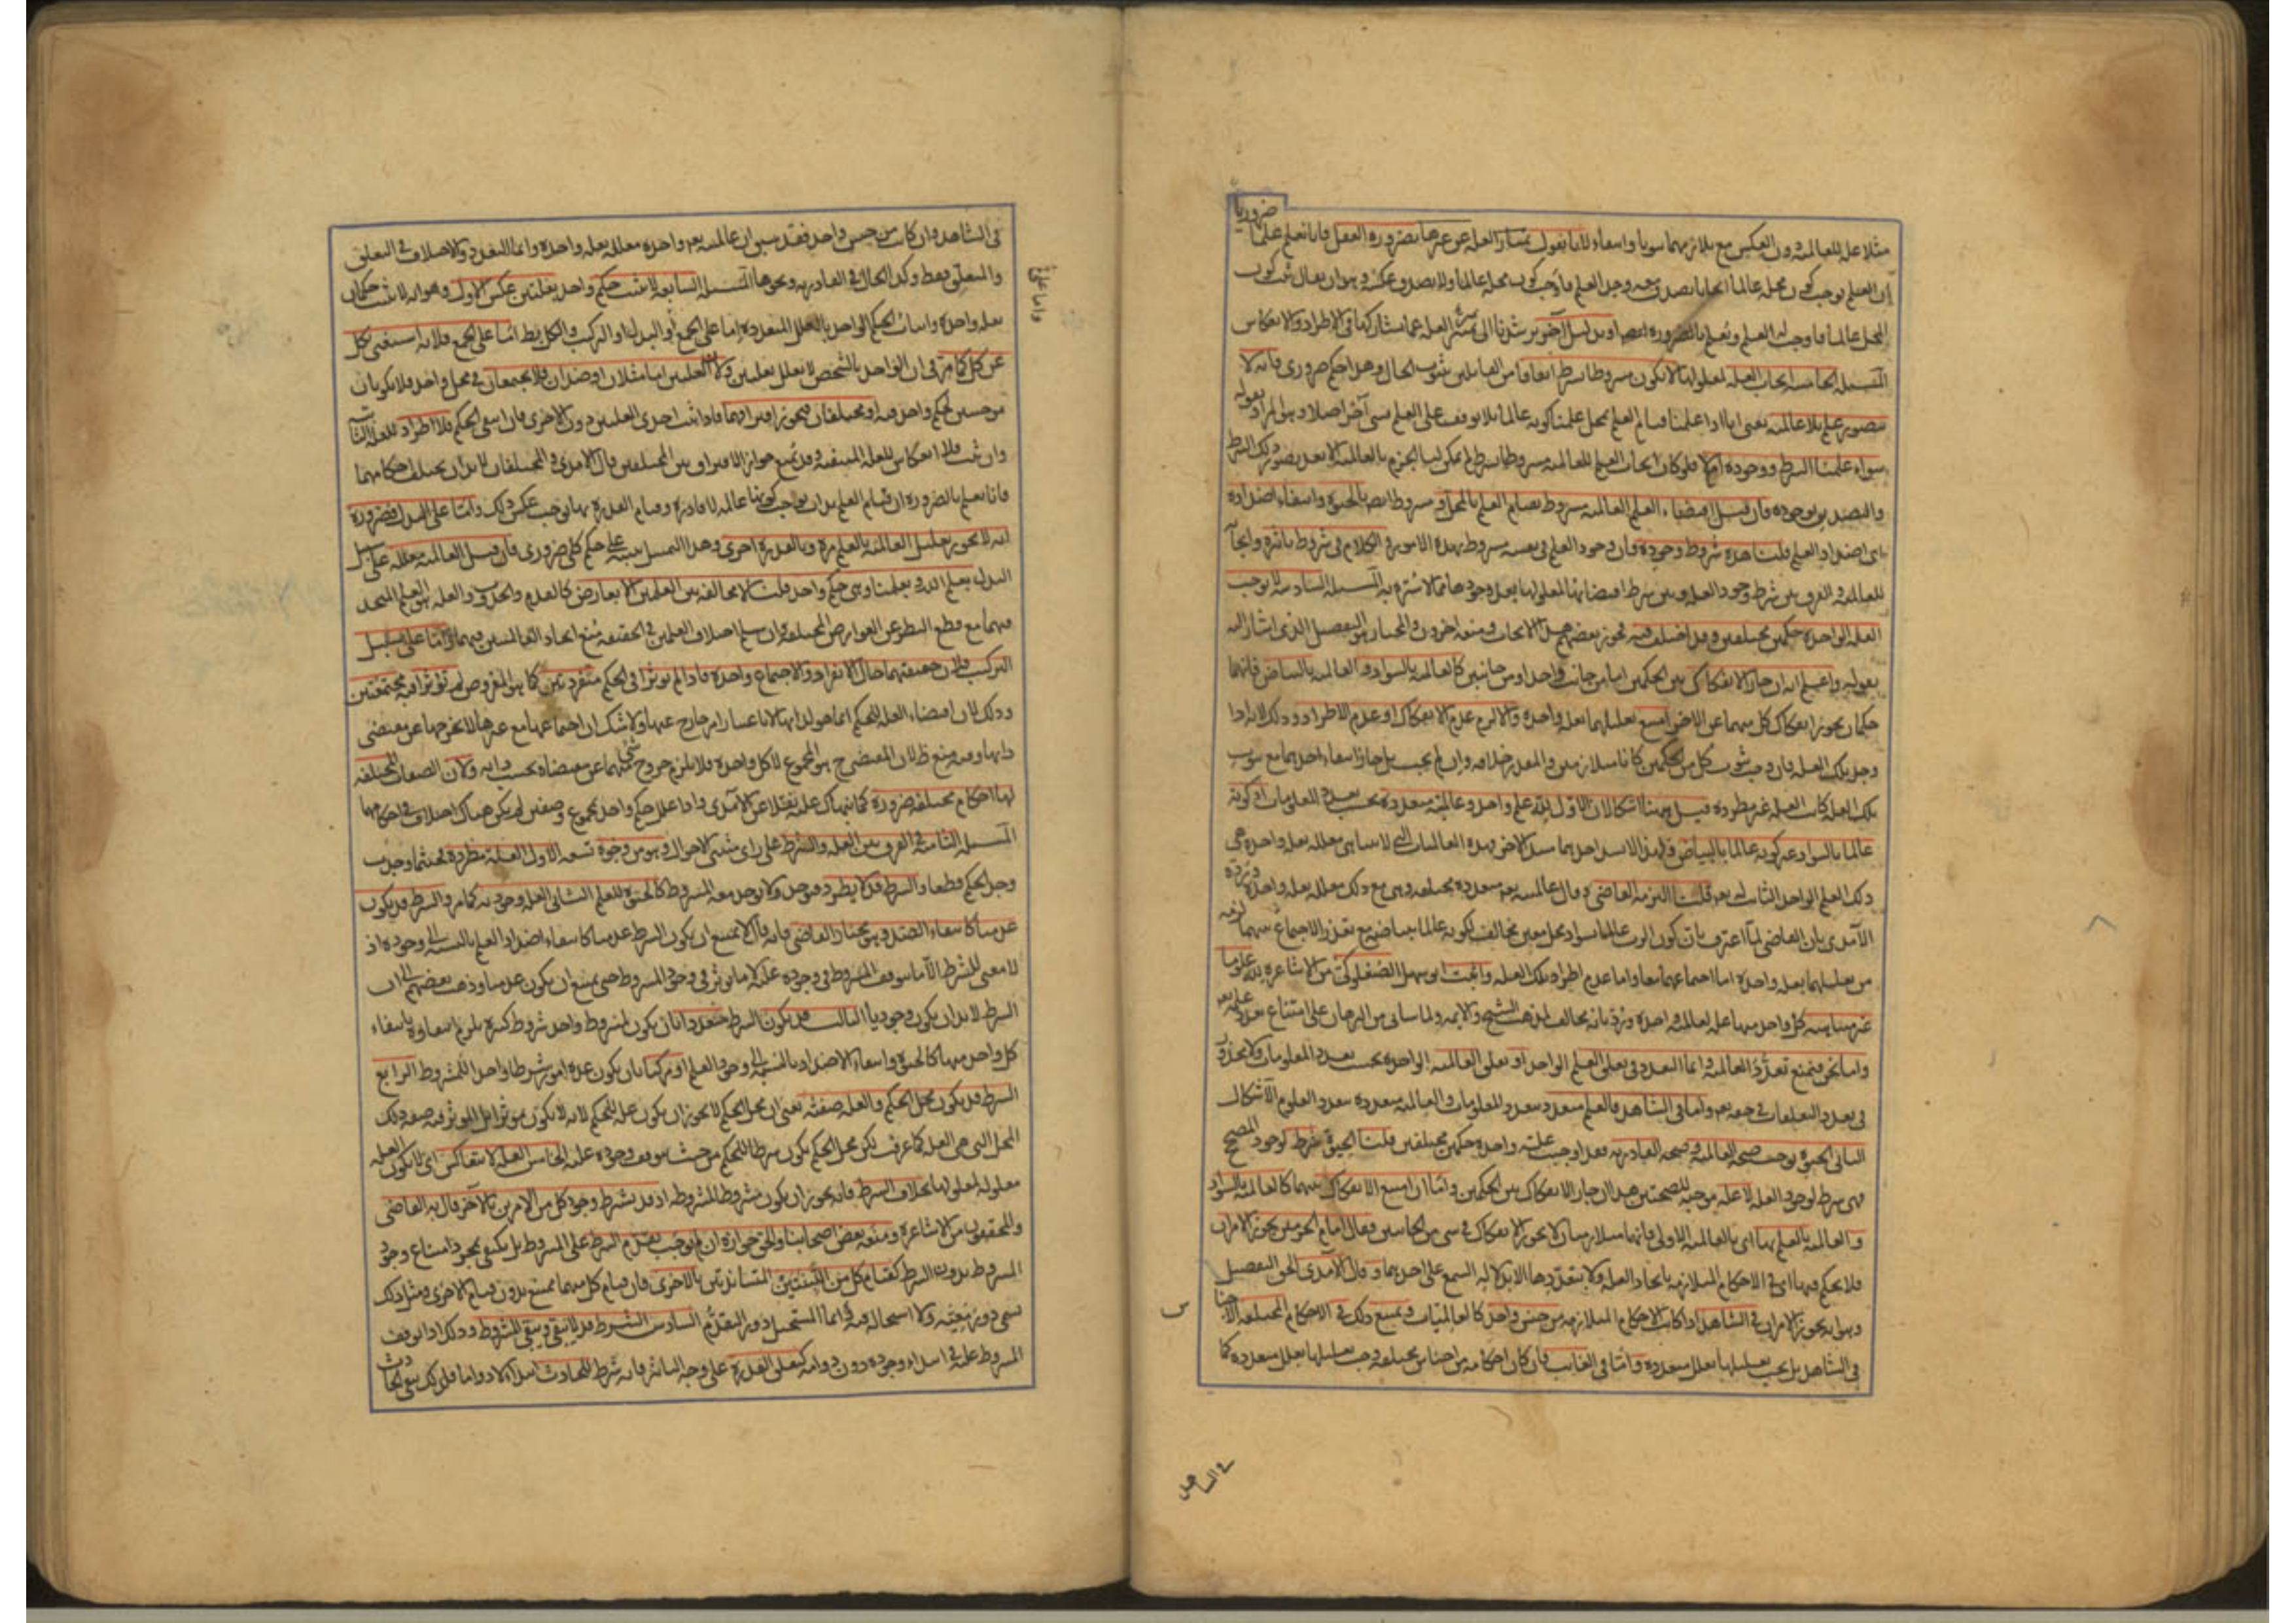 ضروريا
مثلا علة للعالمية دون العكس مع تلازمهما ثبوتا وانتفاء لانا نقول تمتاز العلة عن غيرها بضرورة العقل فانا نعلم علما
ان العلم يوجب كون محله عالما ايجابا يصدق معه وجد العلم فاوجب كون محله عالما ولا يصدق عكسه وهو ان يقال ثبت كون
المحل عالما فاوجب له العلم ونعلم بالضرورة ايضا او بدليل آخر يرشدنا الى تميز العلة عما يشاركها في الاطراد والانعكاس
المسئلة الخامسة ايجاب العلة لمعلولها لا يكون مشروطا بشرط اتفاقا من القائلين بثبوت الحال وهذا حكم ضروري فانه لا
يتصور علم بلا عالمية يعني انا اذا علمنا قيام العلم بمحل علمنا كونه عالما بلا توقف على العلم بشئ آخر اصلا وهو المراد بقوله
سواء علمنا الشرط ووجوده ام لا فلو كان ايجاب العلم للعالمية مشروطا بشرط لم يمكن لنا الجزم بالعالمية الا بعد تصور ذلك الشرط
والتصديق بوجوده فان قيل اقتضاء العلم العالمية مشروط بقيام العلم بالمحل ومشروط ايضا بالحيوة وانتفاء اضداده
اي اضداد العلم قلنا هذه شروط وجوده فان وجود العلم في نفسه مشروط بهذه الامور والكلام في شروط تاثيره وايجابه
للعالمية والفرق بين شرط وجود العلة وبين شرط اقتضائها لمعلولها بعد وجودها مما لا سترة به المسئلة السادسة لا يوجب
العلة الواحدة حكمين مختلفين وقد اختلف فيه فجوز بعضهم هذا الايجاب ومنعه آخرون والمختار هو التفصيل الذي اشار اليه
بقوله واعلم انه ان جاز الانفكاك بين الحكمين اما من جانب واحد او من جانبين كالعالمية بالسواد والعالمية بالبياض فانهما
حكمان يجوز انفكاك كل منهما عن الآخر امتنع تعليلهما بعلة واحدة والا لزم عدم الانفكاك او عدم الاطراد وذلك لانه اذا
وجد تلك العلة فان وجب ثبوت كل من الحكمين كانا متلازمين والمقدر خلافه وان لم يجب بل جاز انتفاء احدهما مع ثبوت
تلك العلة كانت العلة غير مطردة قيل ههنا اشكالان الاول لله علم واحد وعالمية متعددة بحسب تعدد المعلومات اذ كونه
عالما بالسواد غير كونه عالما بالبياض ولهذا لا يسد احدهما مسد الآخر وهذه العالميات التي لا تتناهى معللة بعلة واحدة هي
ذلك العلم الواحد الثابت له تعالى قلنا التزمه القاضي وقال عالميته تعالى متعددة مختلفة وهي مع ذلك معللة بعلة واحدة ورده
الآمدي بان القاضي لما اعترف بان كون الرب عالما بسواد محل معين مخالف لكونه عالما ببياضه مع تعذر الاجتماع بينهما لزمه
من تعليلهما بعلة واحدة اما اجتماعهما معا واما عدم اطراد تلك العلة واثبت ابو سهل الصعلوكي من الاشاعرة لله علوما
غير متناهية كل واحد منها علة لعالمية واحدة ورد بانه مخالف لمذهب الشيخ والائمة ولما سياتي من البرهان على امتناع تعدد علمه تعالى
واما نحن فنمنع تعدد العالمية وانما التعدد في تعلق العلم الواحد او تعلق العالمية الواحدة بحسب تعدد المعلومات ولا محذور
في تعدد التعلقات في حقه تعالى واما في الشاهد فالعلم متعدد بتعدد المعلومات والعالمية متعددة بتعدد العلوم الاشكال
الثاني الحيوة توجب صحة العالمية وصحة القادرية فقد اوجبت علة واحدة حكمين مختلفين قلنا الحيوة شرط لوجود المصحح
فهي شرط لوجود العلة لا علة موجبة للصحتين هذا ان جاز الانفكاك بين الحكمين واما ان امتنع الانفكاك بينهما كالعالمية بالسواد
والعالمية بالعلم بها اي بالعالمية الاولى فانهما متلازمتان لا يجوز الانفكاك في شئ من الجانبين فقال امام الحرمين يجوز الامران
فلا يحكم فيها اي في الاحكام المتلازمة باتحاد العلة ولا بتعددها الا بدلالة السمع على احدهما وقال الآمدي الحق التفصيل
وهو انه يجوز الامران في الشاهد اذا كانت الاحكام المتلازمة من جنس واحد كالعالميات ويمتنع ذلك في الاحكام المختلفة الاجناس
في الشاهد بل يجب تعليلها بعلل متعددة واما في الغائب فان كان احكامه من اجناس مختلفة وجب تعليلها بعلل متعددة كما
في الشاهد
في الشاهد وان كانت من جنس واحد فقد سبق ان عالميته تعالى واحدة معللة بعلة واحدة وانما التعدد والاختلاف في التعلق
والمتعلق فقط وكذا الحال في القادرية ونحوها المسئلة السابعة لا يثبت حكم واحد بعلتين عكس الاول وهو انه لا يثبت حكمان
بعلة واحدة واثبات الحكم الواحد بالعلل المتعددة اما على الجمع او البدل او التركيب والكل بط اما على الجمع فلانه استغنى بكل
عن كل كما مر في ان الواحد بالشخص لا يعلل بعلتين ولان العلتين اما مثلان او ضدان فلا يجتمعان في محل واحد فلا يكونان
موجبتين لحكم واحد فيه او مختلفان فيجوز افتراقهما فاذا ثبت احدى العلتين دون الاخرى فان انتفى الحكم فلا اطراد للعلة الثابتة
وان ثبت فلا انعكاس للعلة المنتفية وقد يمنع جواز الافتراق بين المختلفين قال الآمدي والمختلفان لا بد ان يختلف احكامهما
فانا نعلم بالضرورة ان قيام العلم بذات يوجب كونها عالمة لا قادرة وقيام القدرة بها يوجب عكس ذلك واما على البدل فضرورة
انه لا يجوز تعليل العالمية بالعلم مرة وبالقدرة اخرى وهذا التمثيل ينبه على حكم كلي ضروري فان قيل العالمية معللة على سبيل
البدل بعلم الله وبعلمنا وهي حكم واحد قلنا لا مخالفة بين العلمين الا بعارض كالقدم والحدوث والعلة هو العلم المتحد
فيهما مع قطع النظر عن العوارض المختلفة وان سلم اختلاف العلمين في الحقيقة منع اتحاد العالميتين فيهما واما على سبيل
التركيب فلان حقيقتهما حال الانفراد والاجتماع واحدة فاذا لم تؤثرا في الحكم منفردتين كما هو المفروض لم تؤثرا فيه مجتمعتين
وذلك لان اقتضاء العلة للحكم انما هو لذاتها لا باعتبار امر خارج عنها ولا شك ان اجتماعها مع غيرها لا يخرجها عن مقتضى
ذاتها وفيه منع ظ لان المقتضي ح هو المجموع لا كل واحدة فلا يلزم خروج شئ منهما عن مقتضاه بحسب ذاته ولان الصفات المختلفة
لها احكام مختلفة ضرورة كما نبهناك عليه نقلا عن الآمدي واذا علل حكم واحد بمجموع وصفين لم يكن هناك اختلاف في احكامها
المسئلة الثامنة في الفرق بين العلة والشرط على راي مثبتي الاحوال وهو من وجوه تسعة الاول العلة مطردة فحيثما وجدت
وجد الحكم قطعا والشرط قد لا يطرد فيوجد ولا يوجد معه المشروط كالحيوة للعلم الثاني العلة وجودية كما مر والشرط قد يكون
عدميا كانتفاء الضد وهو مختار القاضي فانه قال لا يمتنع ان يكون الشرط عدميا كانتفاء اضداد العلم بالنسبة الى وجوده اذ
لا معنى للشرط الا ما يتوقف المشروط في وجوده عليه لا ما يؤثر في وجود المشروط حتى يمتنع ان يكون عدميا وذهب بعضهم الى ان
الشرط لا بد ان يكون وجوديا الثالث قد يكون الشرط متعددا بان يكون لمشروط واحد شروط كثيرة يلزم انتفاؤه بانتفاء
كل واحد منها كالحيوة وانتفاء الاضداد بالنسبة الى وجود العلم او مركبا بان يكون عدة امور شرطا واحدا للمشروط الرابع
الشرط قد يكون محل الحكم والعلة صفته يعني ان محل الحكم لا يجوز ان يكون علة للحكم لانه لا يكون مؤثرا بل المؤثر فيه صفة ذلك
المحل التي هي العلة كما عرفت لكن محل الحكم يكون شرطا للحكم من حيث يتوقف وجوده عليه الخامس العلة لا يتعاكس اي لا يكون العلة
معلولة لمعلولها بخلاف الشرط فانه يجوز ان يكون مشروطا لمشروطه اذ قد يشترط وجود كل من الامرين بالآخر قال به القاضي
والمحققون من الاشاعرة ومنعه بعض اصحابنا والحق جوازه ان لم يوجب تقدم الشرط على المشروط بل يكتفى بمجرد امتناع وجود
المشروط بدون الشرط كقيام كل من اللبنتين المتساندتين بالاخرى فان قيام كل منهما يمتنع بدون قيام الاخرى ومثل ذلك
يسمى دور معية ولا استحالة فيه وانما المستحيل دور التقدم السادس الشرط قد لا يبقى ويبقى المشروط وذلك اذا توقف
المشروط عليه في ابتداء وجوده دون دوامه كتعلق القدرة على وجه التاثير فانه شرط للحادث ابتداء لا دواما فلذلك يبقى الحادث